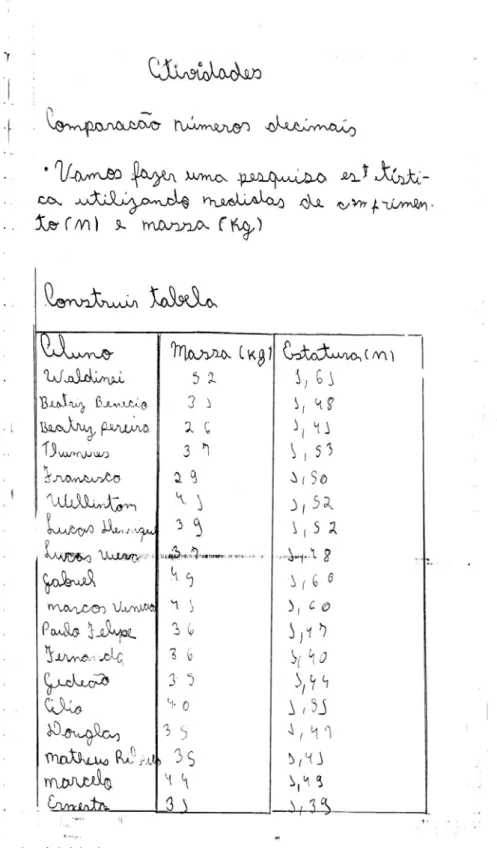 Atividades
Comparacão números decimais
• Vamos fazer uma pesquisa estatísti-
ca utilizando medidas de comprimen-
to (m) e massa (Kg)
Construir tabela
Aluno Massa (kg) Estatura (m)
Waldinei 52 1,61
Beatriz Benicio 31 1,48
Beatriz pereira 26 1,41
37 1,53
Francisco 29 1,50
Wellintom 41 1,52
Lucas Henrique 39 1,52
Lucas
Gabriel 49 1,60
marcos 41 1,60
Paulo Felype 36 1,47
Fernanda 36 1,40
Gedeão 1,44
Célio 40 1,51
Douglas 35 1,41
matheus 35 1,41
marcelo 44 1,49
Ernesto 31 1,39